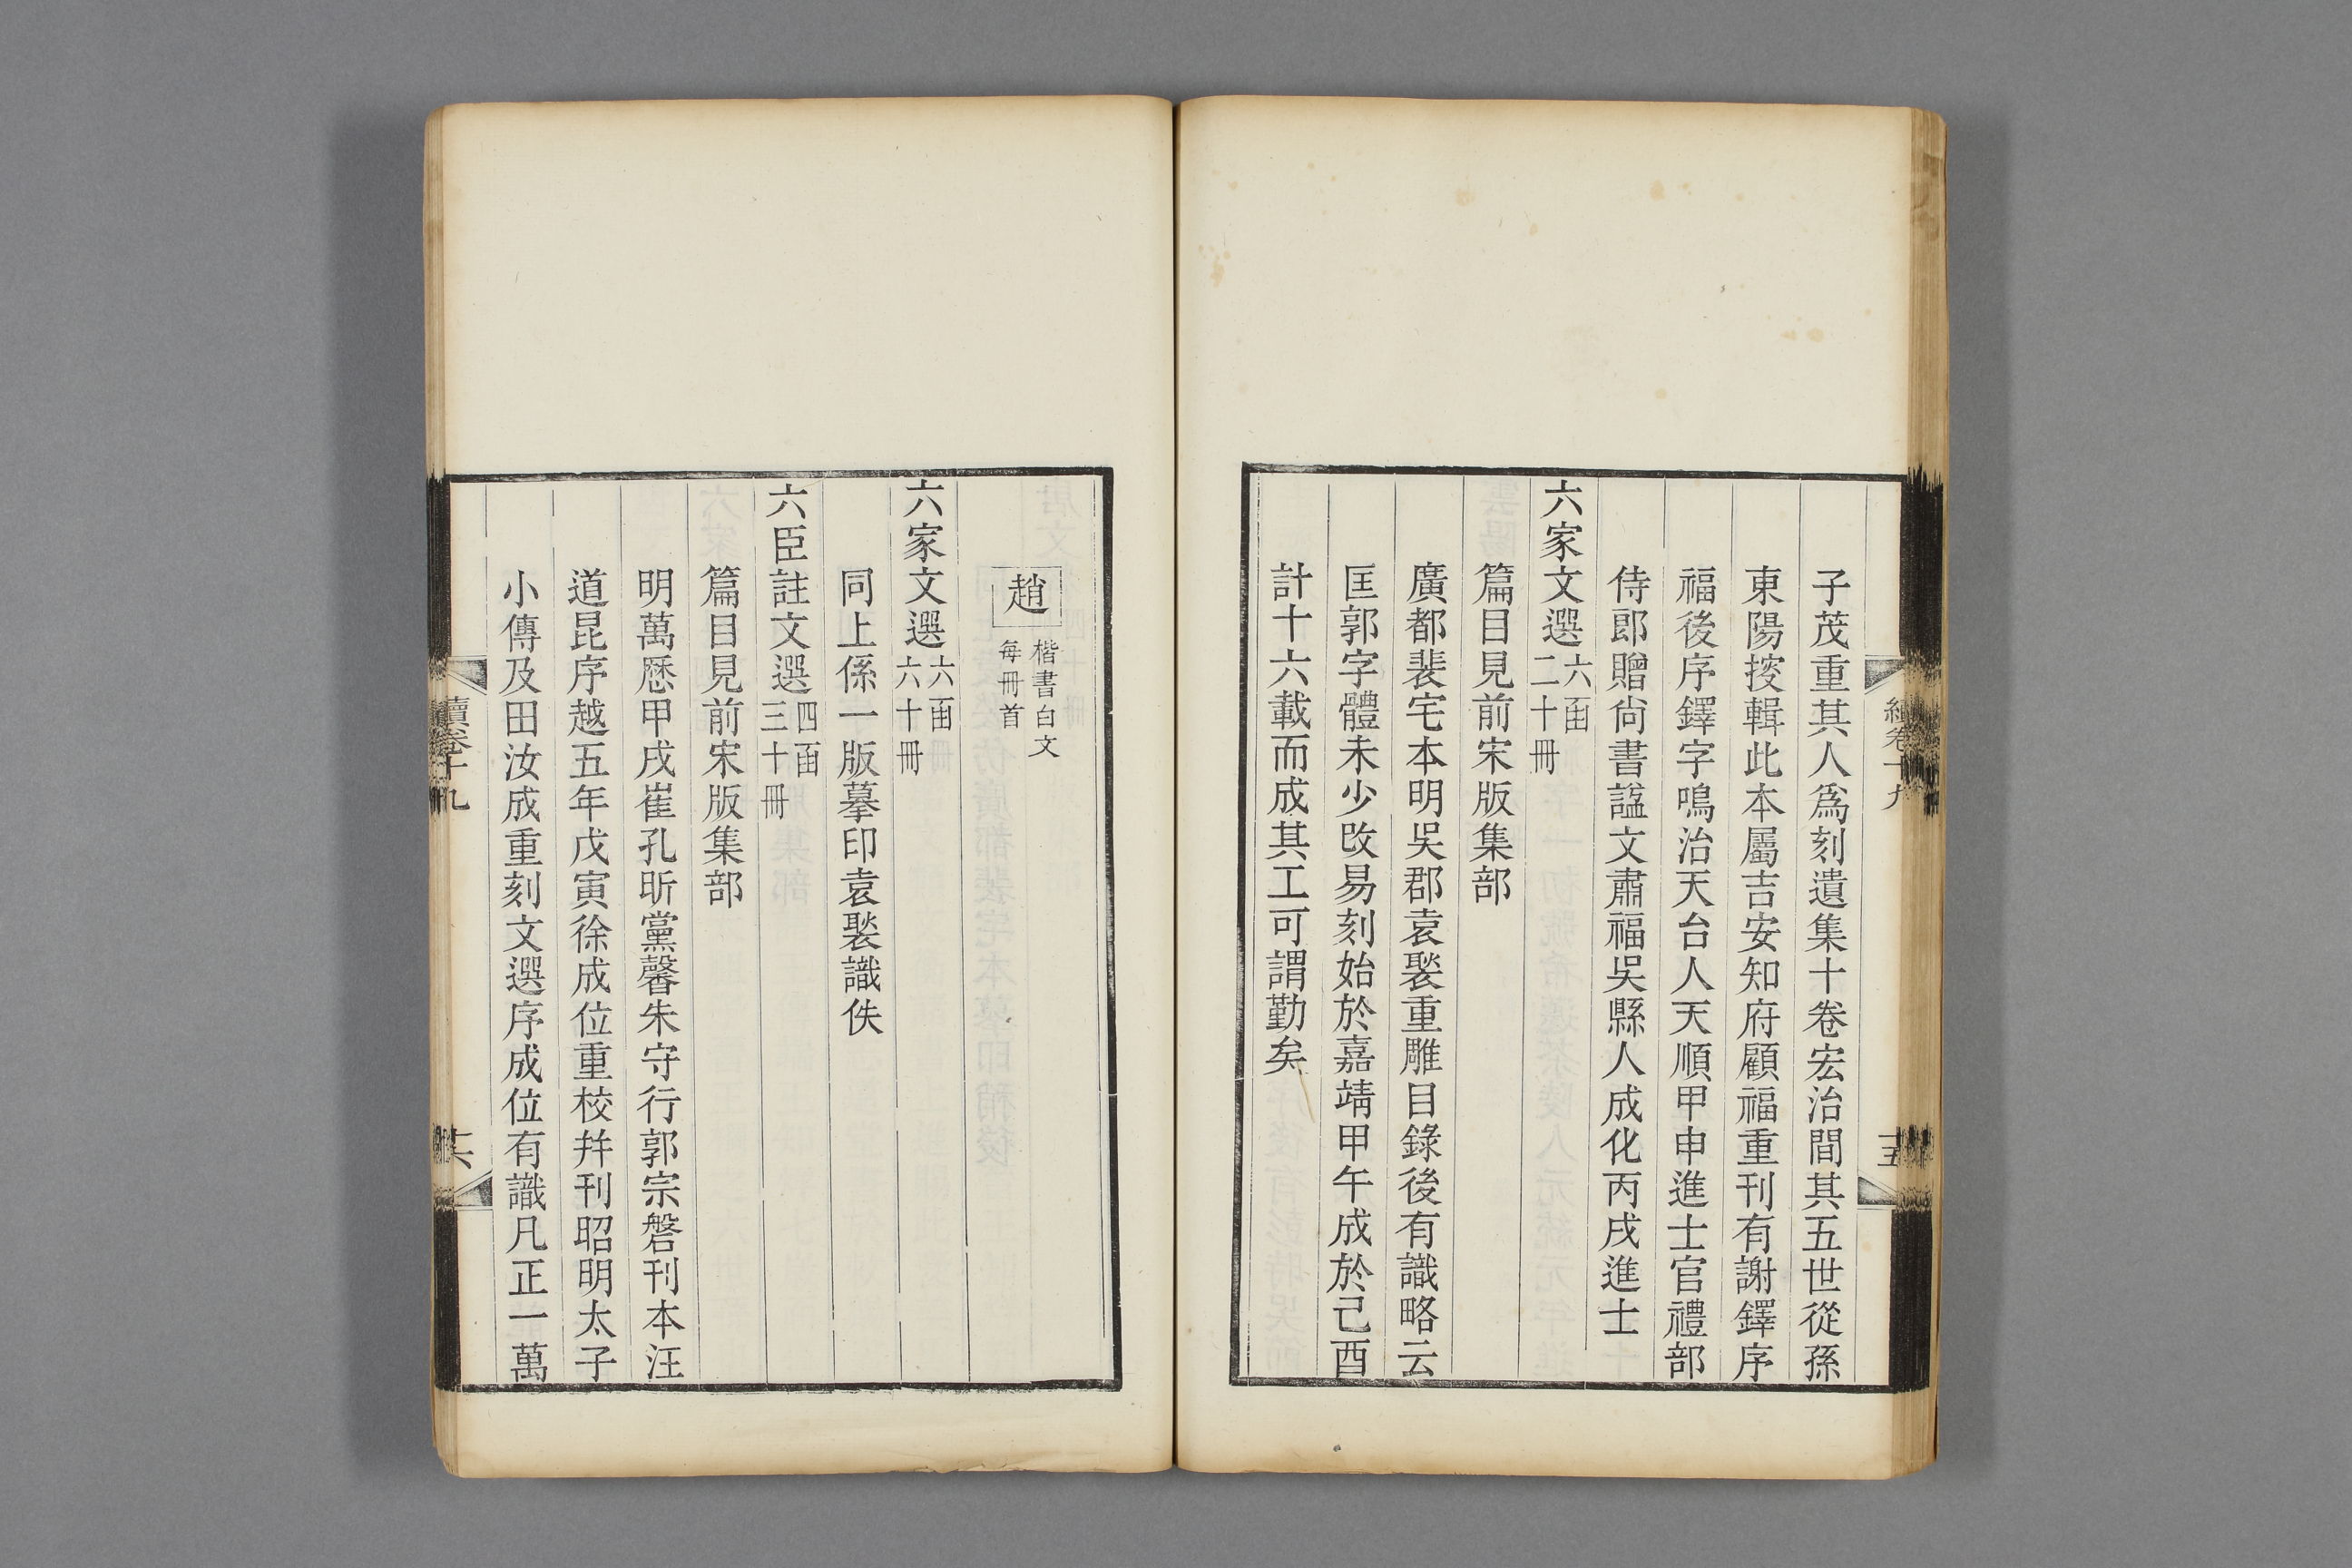 子茂重其人爲刻遺集十卷宏治間其五世從孫
東陽按輯此本屬吉安知府顧福重刊有謝鐸序
福後序鐸字鳴治天台人天順甲申進士官禮部
侍郎贈尙書諡文肅福吳縣人成化丙戌進士
六家文選
六函
二十冊
篇目見前宋版集部
廣都裴宅本明吳郡袁褧重雕目錄後有識略云
匡郭字體未少改易刻始於嘉靖甲午成於己酉
計十六載而成其工可謂勤矣
續卷十九
十五
趙
楷書白文
每冊首
六家文選
六函
六十冊
同上係一版摹印袁褧識佚
六臣註文選
四函
三十冊
篇目見前宋版集部
明萬厯甲戌崔孔昕黨馨朱守行郭宗磐刊本汪
道昆序越五年戊寅徐成位重校幷刊昭明太子
小傳及田汝成重刻文選序成位有識凡正一萬
續卷十九
十六